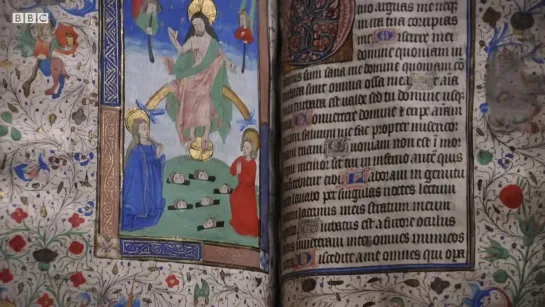 BBC
arguas me neq
in ira tua corripias
me Miserere mei
domine quoniam in
sum sana me domine quoniam con
turbata sunt omnia ossa mea Et aia
turbata est valde sed tu domine usq
Convertere domine et eripe aiam
meam salvum me fac propter misericor
tuam Quoniam non est in mor
memor sit tui in inferno autem quis
confitebitur tibi Laboravi in gemitu
lavabo per singulas noctes lectum
lacrimis meis stratum meum
Turbatus est a furore oculus
inveteravi inter omnes inimicos
Discedite a me omnes qui opa